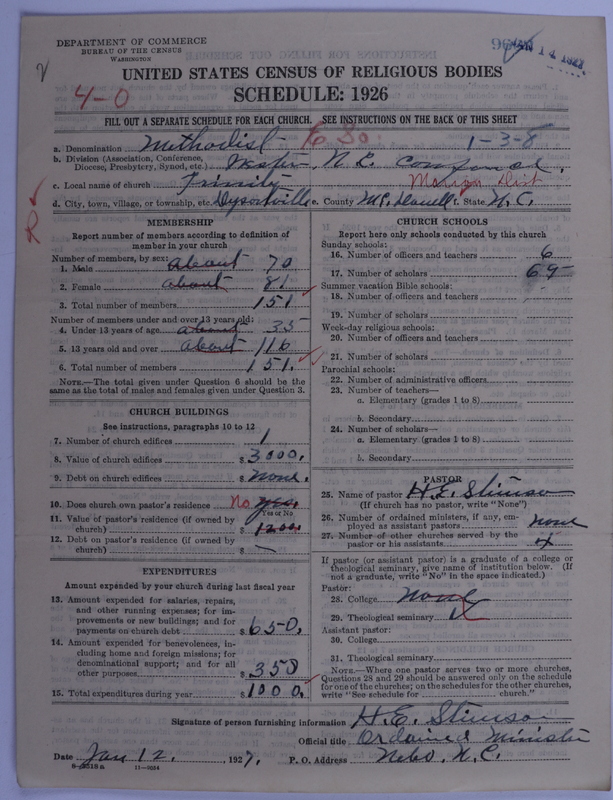 DEPARTMENT OF COMMERCE
BUREAU OF THE CENSUS
WASHINGTON
UNITED STATES CENSUS OF RELIGIOUS BODIES
SCHEDULE: 1926
4-0
FILL OUT A SEPARATE SCHEDULE FOR EACH CHURCH. SEE INSTRUCTIONS ON THE BACK OF THIS SHEET
a. Denomination Methodist E So. 1-3-8
b. Division (Association, Conference, Diocese, Presbytery, Synod, etc.) N.C.
Marion Dist
c. Local name of church Trinity
d. City, town, village, or township, etc. Dysortville e. County McDowell f. State N.C.
R
MEMBERSHIP
Report number of members according to definition of member in your church
Number of members, by sex:
1. Male about 70
2. Female about 81
3. Total number of members 151
Number of members under and over 13 years old:
4. Under 13 years of age about 35
5. 13 years old and over about 116
6. Total number of members 151
NOTE.—The total given under Question 6 should be the same as the total of males and females given under Question 3.
CHURCH BUILDINGS
See instructions, paragraphs 10 to 12
7. Number of church edifices 1
8. Value of church edifices $ 3000.
9. Debt on church edifices $ None.
10. Does church own pastor's residence No yes.
Yes or No
11. Value of pastor's residence (if owned by church) $ 1200.
12. Debt on pastor's residence (if owned by church) $ —
EXPENDITURES
Amount expended by your church during last fiscal year
13. Amount expended for salaries, repairs, and other running expenses; for improvements or new buildings; and for payments on church debt $ 650.
14. Amount expended for benevolences, including home and foreign missions; for denominational support; and for all other purposes $ 350
15. Total expenditures during year $ 1000.
CHURCH SCHOOLS
Report here only schools conducted by this church
Sunday schools:
16. Number of officers and teachers 6
17. Number of scholars 69
Summer vacation Bible schools:
18. Number of officers and teachers
19. Number of scholars
Week-day religious schools:
20. Number of officers and teachers
21. Number of scholars
Parochial schools:
22. Number of administrative officers
23. Number of teachers—
a. Elementary (grades 1 to 8)
b. Secondary
24. Number of scholars—
a. Elementary (grades 1 to 8)
b. Secondary
PASTOR
25. Name of pastor H.E. Stimson
(If church has no pastor, write "None")
26. Number of ordained ministers, if any, employed as assistant pastors none
27. Number of other churches served by the pastor or his assistants 4
If pastor (or assistant pastor) is a graduate of a college or theological seminary, give name of institution below. (If not a graduate, write "No" in the space indicated.)
Pastor:
28. College None
29. Theological seminary
Assistant pastor:
30. College
31. Theological seminary
NOTE.—Where one pastor serves two or more churches, Questions 28 and 29 should be answered only on the schedule for one of the churches; on the schedules for the other churches, write "See schedule for ........ church."
Signature of person furnishing information H.E. Stimson
Official title Ordained Minister
Date Jan 12. 1927. P. O. Address Nebo, N.C.
8—3318a 11—9084